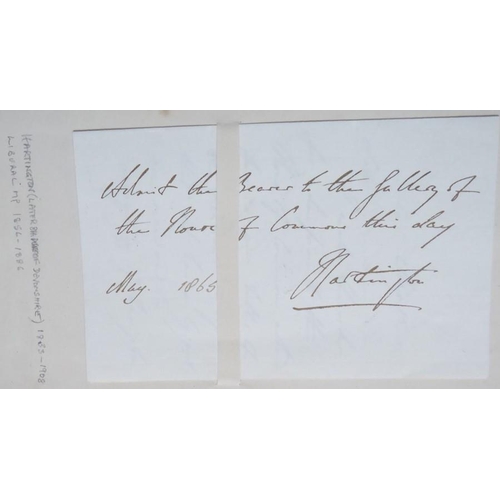 Admit the Bearer to the Gallery of
the House of Commons this day
May. 1865
Hartington
HARTINGTON (LATER DEVONSHIRE) 1833-1908
LIBERAL MP 1856-1886